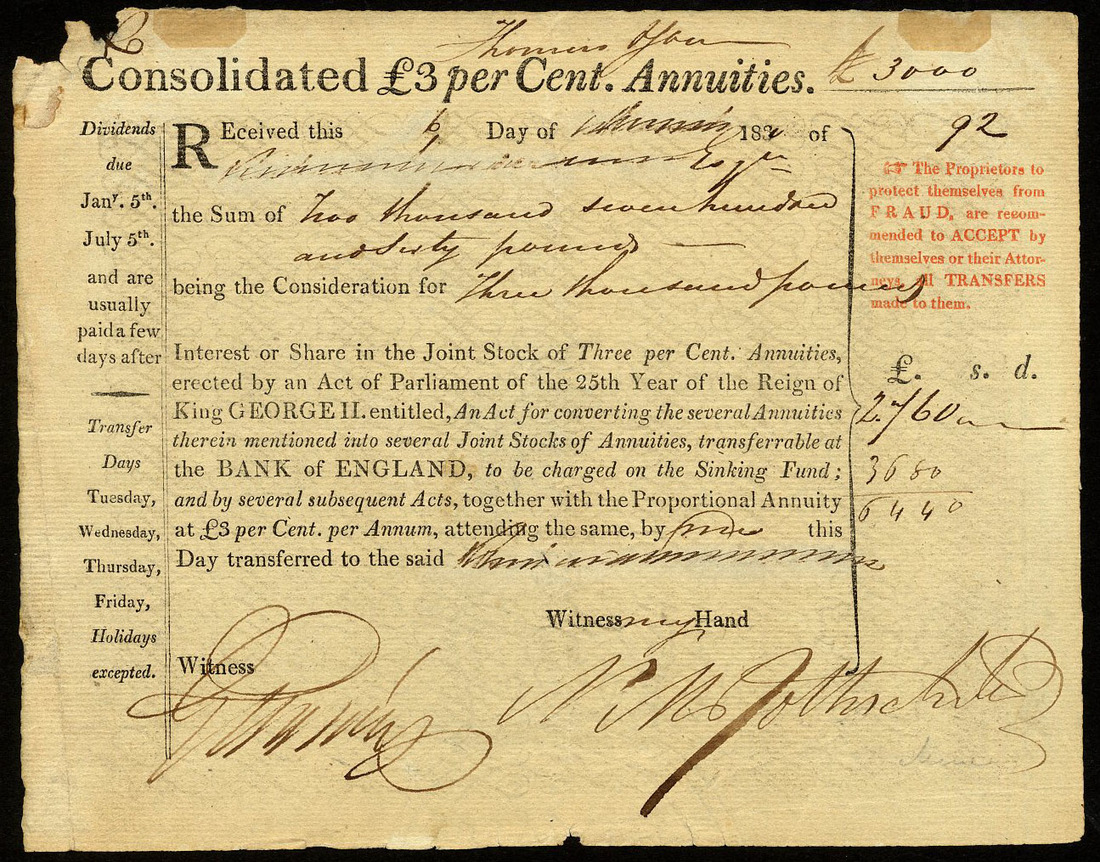 Thomas
Consolidated £3 per Cent. Annuities. £ 3000
Dividends
due
Janʸ. 5ᵗʰ.
July 5ᵗʰ.
and are
usually
paid a few
days after
Transfer
Days
Tuesday,
Wednesday,
Thursday,
Friday,
Holidays
excepted.
REceived this 6 Day of 183 of
Esqʳᵉ
the Sum of Two thousand seven hundred
and Sixty pounds
being the Consideration for Three thousand pounds
Interest or Share in the Joint Stock of Three per Cent. Annuities,
erected by an Act of Parliament of the 25th Year of the Reign of
King GEORGE II. entitled, An Act for converting the several Annuities
therein mentioned into several Joint Stocks of Annuities, transferrable at
the BANK of ENGLAND, to be charged on the Sinking Fund;
and by several subsequent Acts, together with the Proportional Annuity
at £3 per Cent. per Annum, attending the same, by this
Day transferred to the said
Witness my Hand
Witness
N M Rothschild
92
☞ The Proprietors to
protect themselves from
FRAUD, are recom-
mended to ACCEPT by
themselves or their Attor-
neys, all TRANSFERS
made to them.
£. s. d.
2760
3680
6440